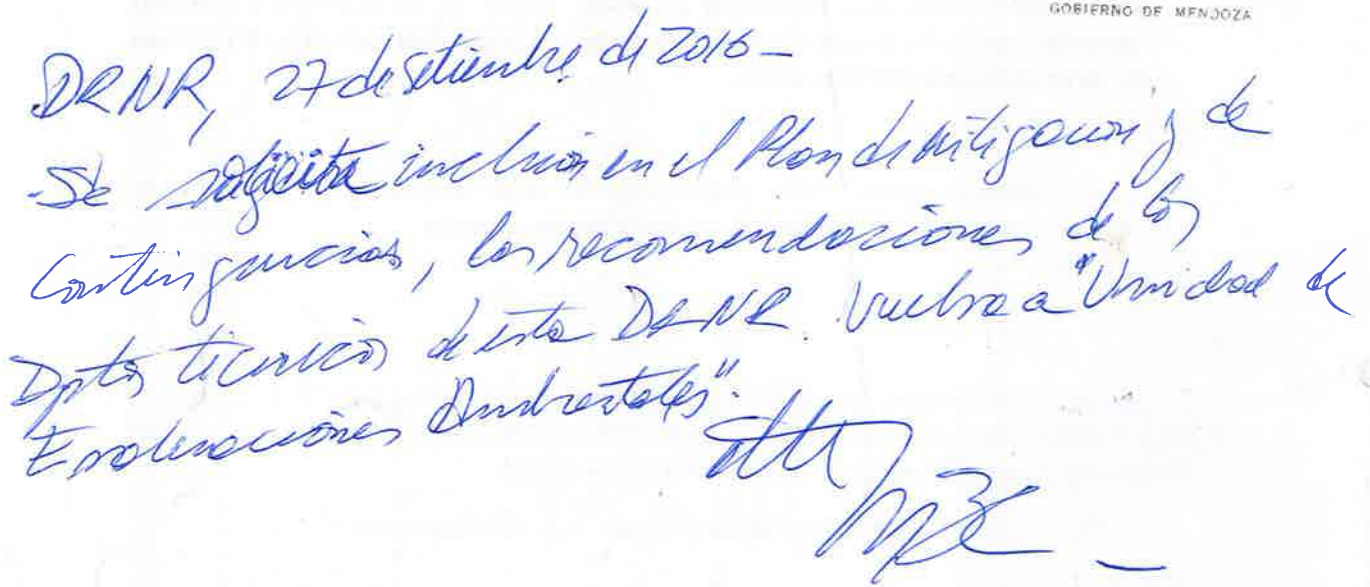 GOBIERNO DE MENDOZA
DRNR, 27 de setiembre de 2016_
-Se solicita inclusión en el Plan de Mitigación y de
Contingencias, las recomendaciones de los
Dptos técnicos de esta DRNR. Vuelva a "Unidad de
Evaluaciones Ambientales".